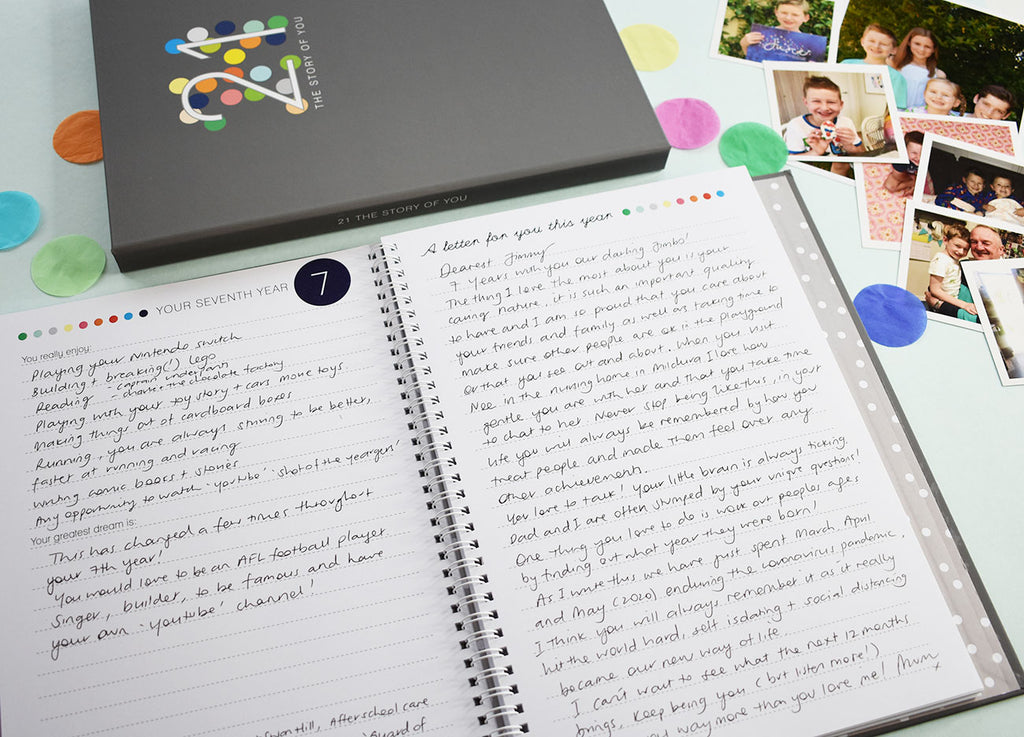 21
THE STORY OF YOU
21 THE STORY OF YOU
YOUR SEVENTH YEAR
7
You really enjoy:
Playing your Nintendo switch
Building + breaking(!) lego
Reading - Captain underpants
- Charlie + the chocolate factory
Playing with your toy story + cars movie toys
Making things out of cardboard boxes
Running, you are always striving to be better,
faster at running and racing
Writing comic books + stories
Any opportunity to watch 'youtube' 'shot of the yeargen'
Your greatest dream is:
This has changed a few times throughout
your 7th year!
You would love to be an AFL football player
singer, builder, to be famous and have
your own 'youtube' channel!
Hill, After school care
Guard of
A letter for you this year
Dearest Jimmy
7 years with you our darling Jimbo!
The thing I love the most about you is your
caring nature, it is such an important quality
to have and I am so proud that you care about
your friends and family as well as taking time to
make sure other people are ok in the playground
or that you see out and about. When you visit
Nee in the nursing home in Mildura I love how
gentle you are with her and that you take time
to chat to her. Never stop being like this, in your
life you will always be remembered by how you
treat people and made them feel over any
other achievement.
You love to talk! Your little brain is always ticking.
Dad and I are often stumped by your unique questions!
One thing you love to do is work out peoples ages
by finding out what year they were born!
As I write this we have just spent March, April
and May (2020) enduring the coronavirus pandemic,
I think you will always remember it as it really
hit the world hard, self isolating + social distancing
became our new way of life.
I can't wait to see what the next 12 months
brings, keep being you (but listen more!)
way more than you love me! Mum
x